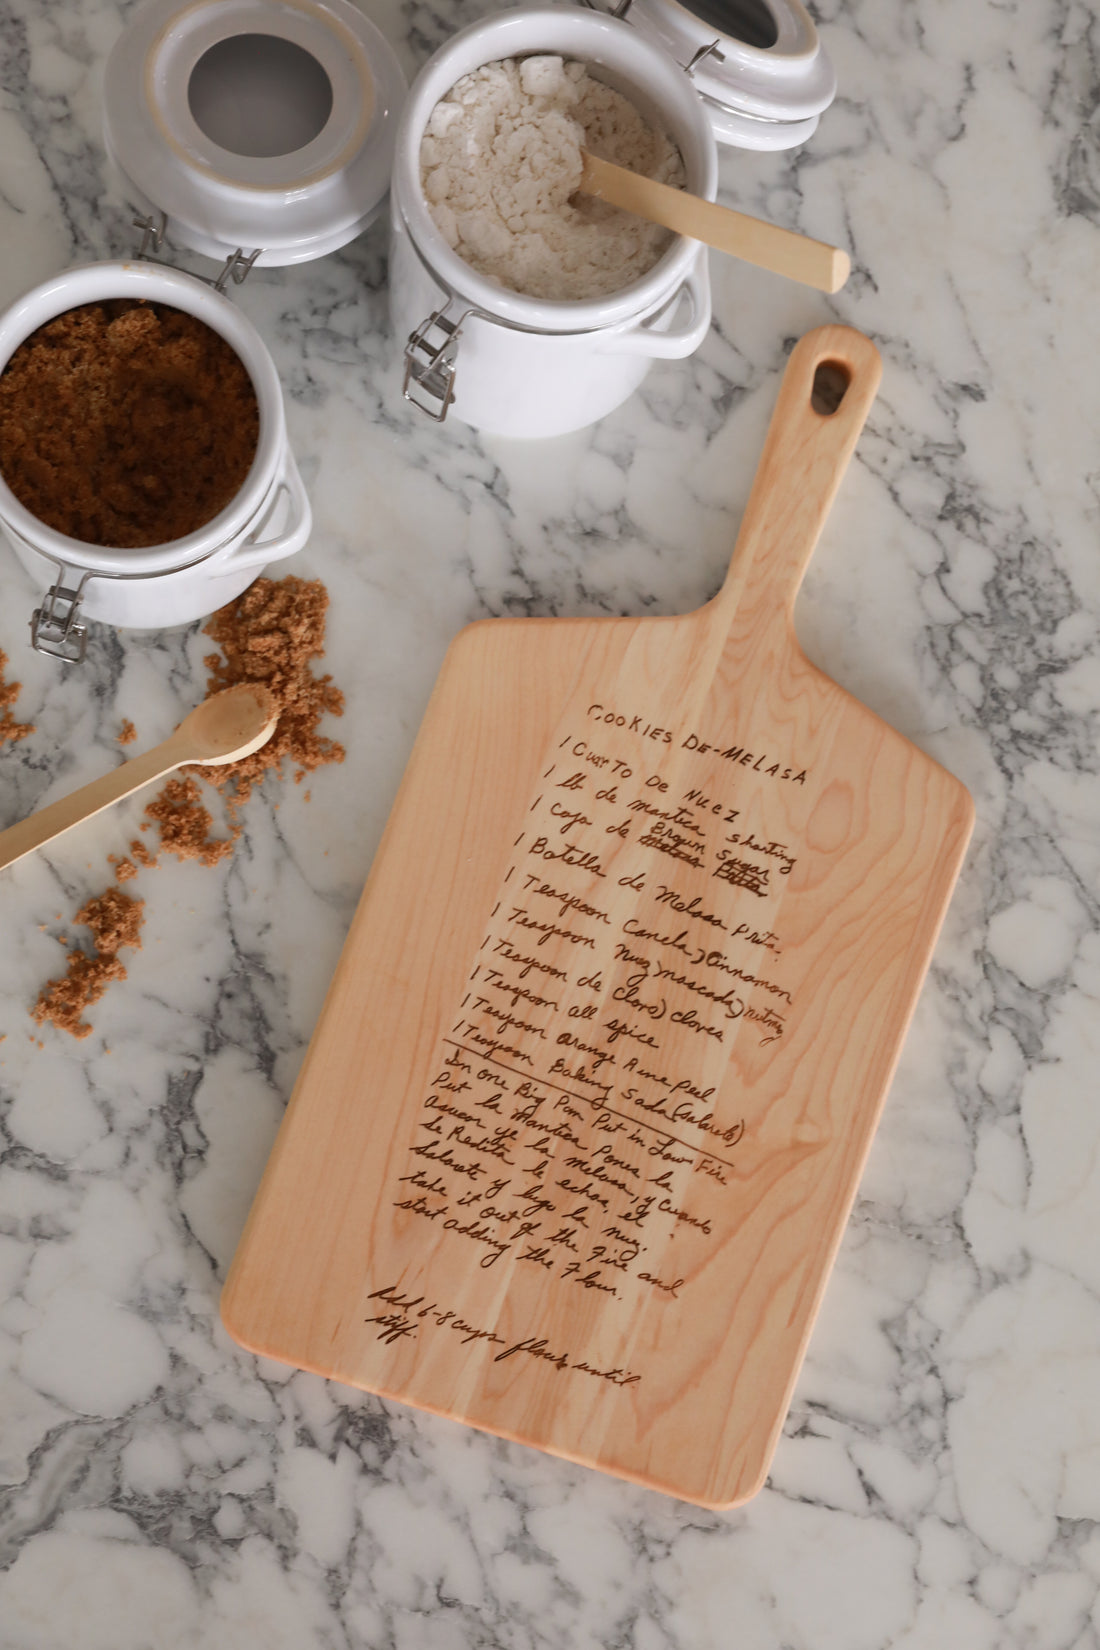 COOKIES DE-MELASA
1 CuarTo De Nuez
1 lb de mantica shorting
1 Caja de Brown Sugar
1 Botella de Melasa Prita.
1 Teaspoon Canela) Cinnamon
1 Teaspoon Nuez moscada) nutmeg
1 Teaspoon de Clavo) cloves
1 Teaspoon all spice
1 Teaspoon Orange Rine peel
1 Teaspoon Baking Soda (salarete)
In one Big Pan Put in Low Fire
Put la Mantica Pones la
asucar ye la melasa, y cuando
se Redita le echas, el
Salarete y lugo la nuez.
take it out of the Fire and
start adding the Flour.
Add 6-8 cups flour until
stiff.